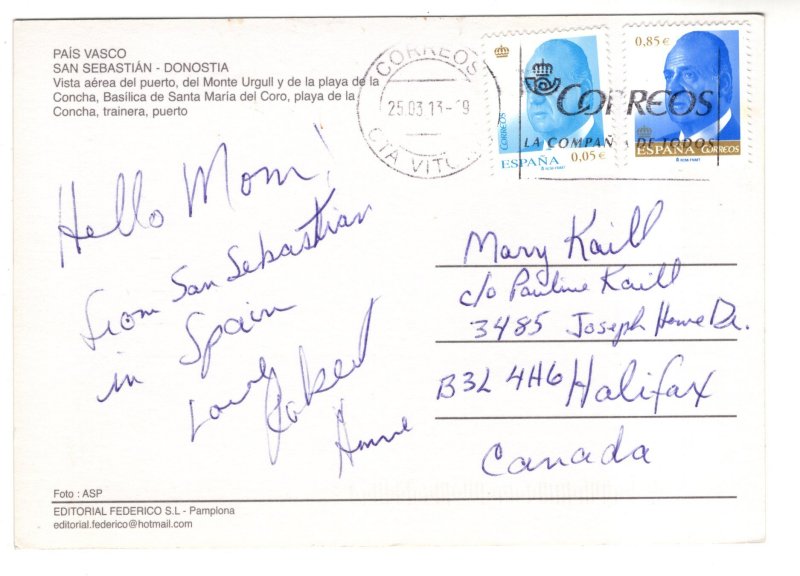 PAÍS VASCO
SAN SEBASTIÁN - DONOSTIA
Vista aérea del puerto, del Monte Urgull y de la playa de la
Concha, Basílica de Santa María del Coro, playa de la
Concha, trainera, puerto
CORREOS
25 03 13
CTA VITO
CORREOS
ESPAÑA
0,05 €
0,85 €
ESPAÑA CORREOS
CORREOS
LA COMPAÑ DE TODOS
Hello Mom!
from San Sebastian
in Spain
Love
Robert
Anne
Mary Kaill
c/o Pauline Kaill
3485 Joseph Howe Dr.
B3L 4H6 Halifax
Canada
Foto : ASP
EDITORIAL FEDERICO S.L - Pamplona
editorial.federico@hotmail.com